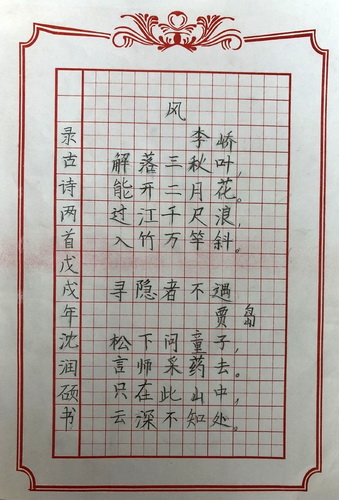 风
李峤
解落三秋叶，
能开二月花。
过江千尺浪，
入竹万竿斜。
寻隐者不遇
贾岛
松下问童子，
言师采药去。
只在此山中，
云深不知处。
录古诗两首戊戌年沈润硕书